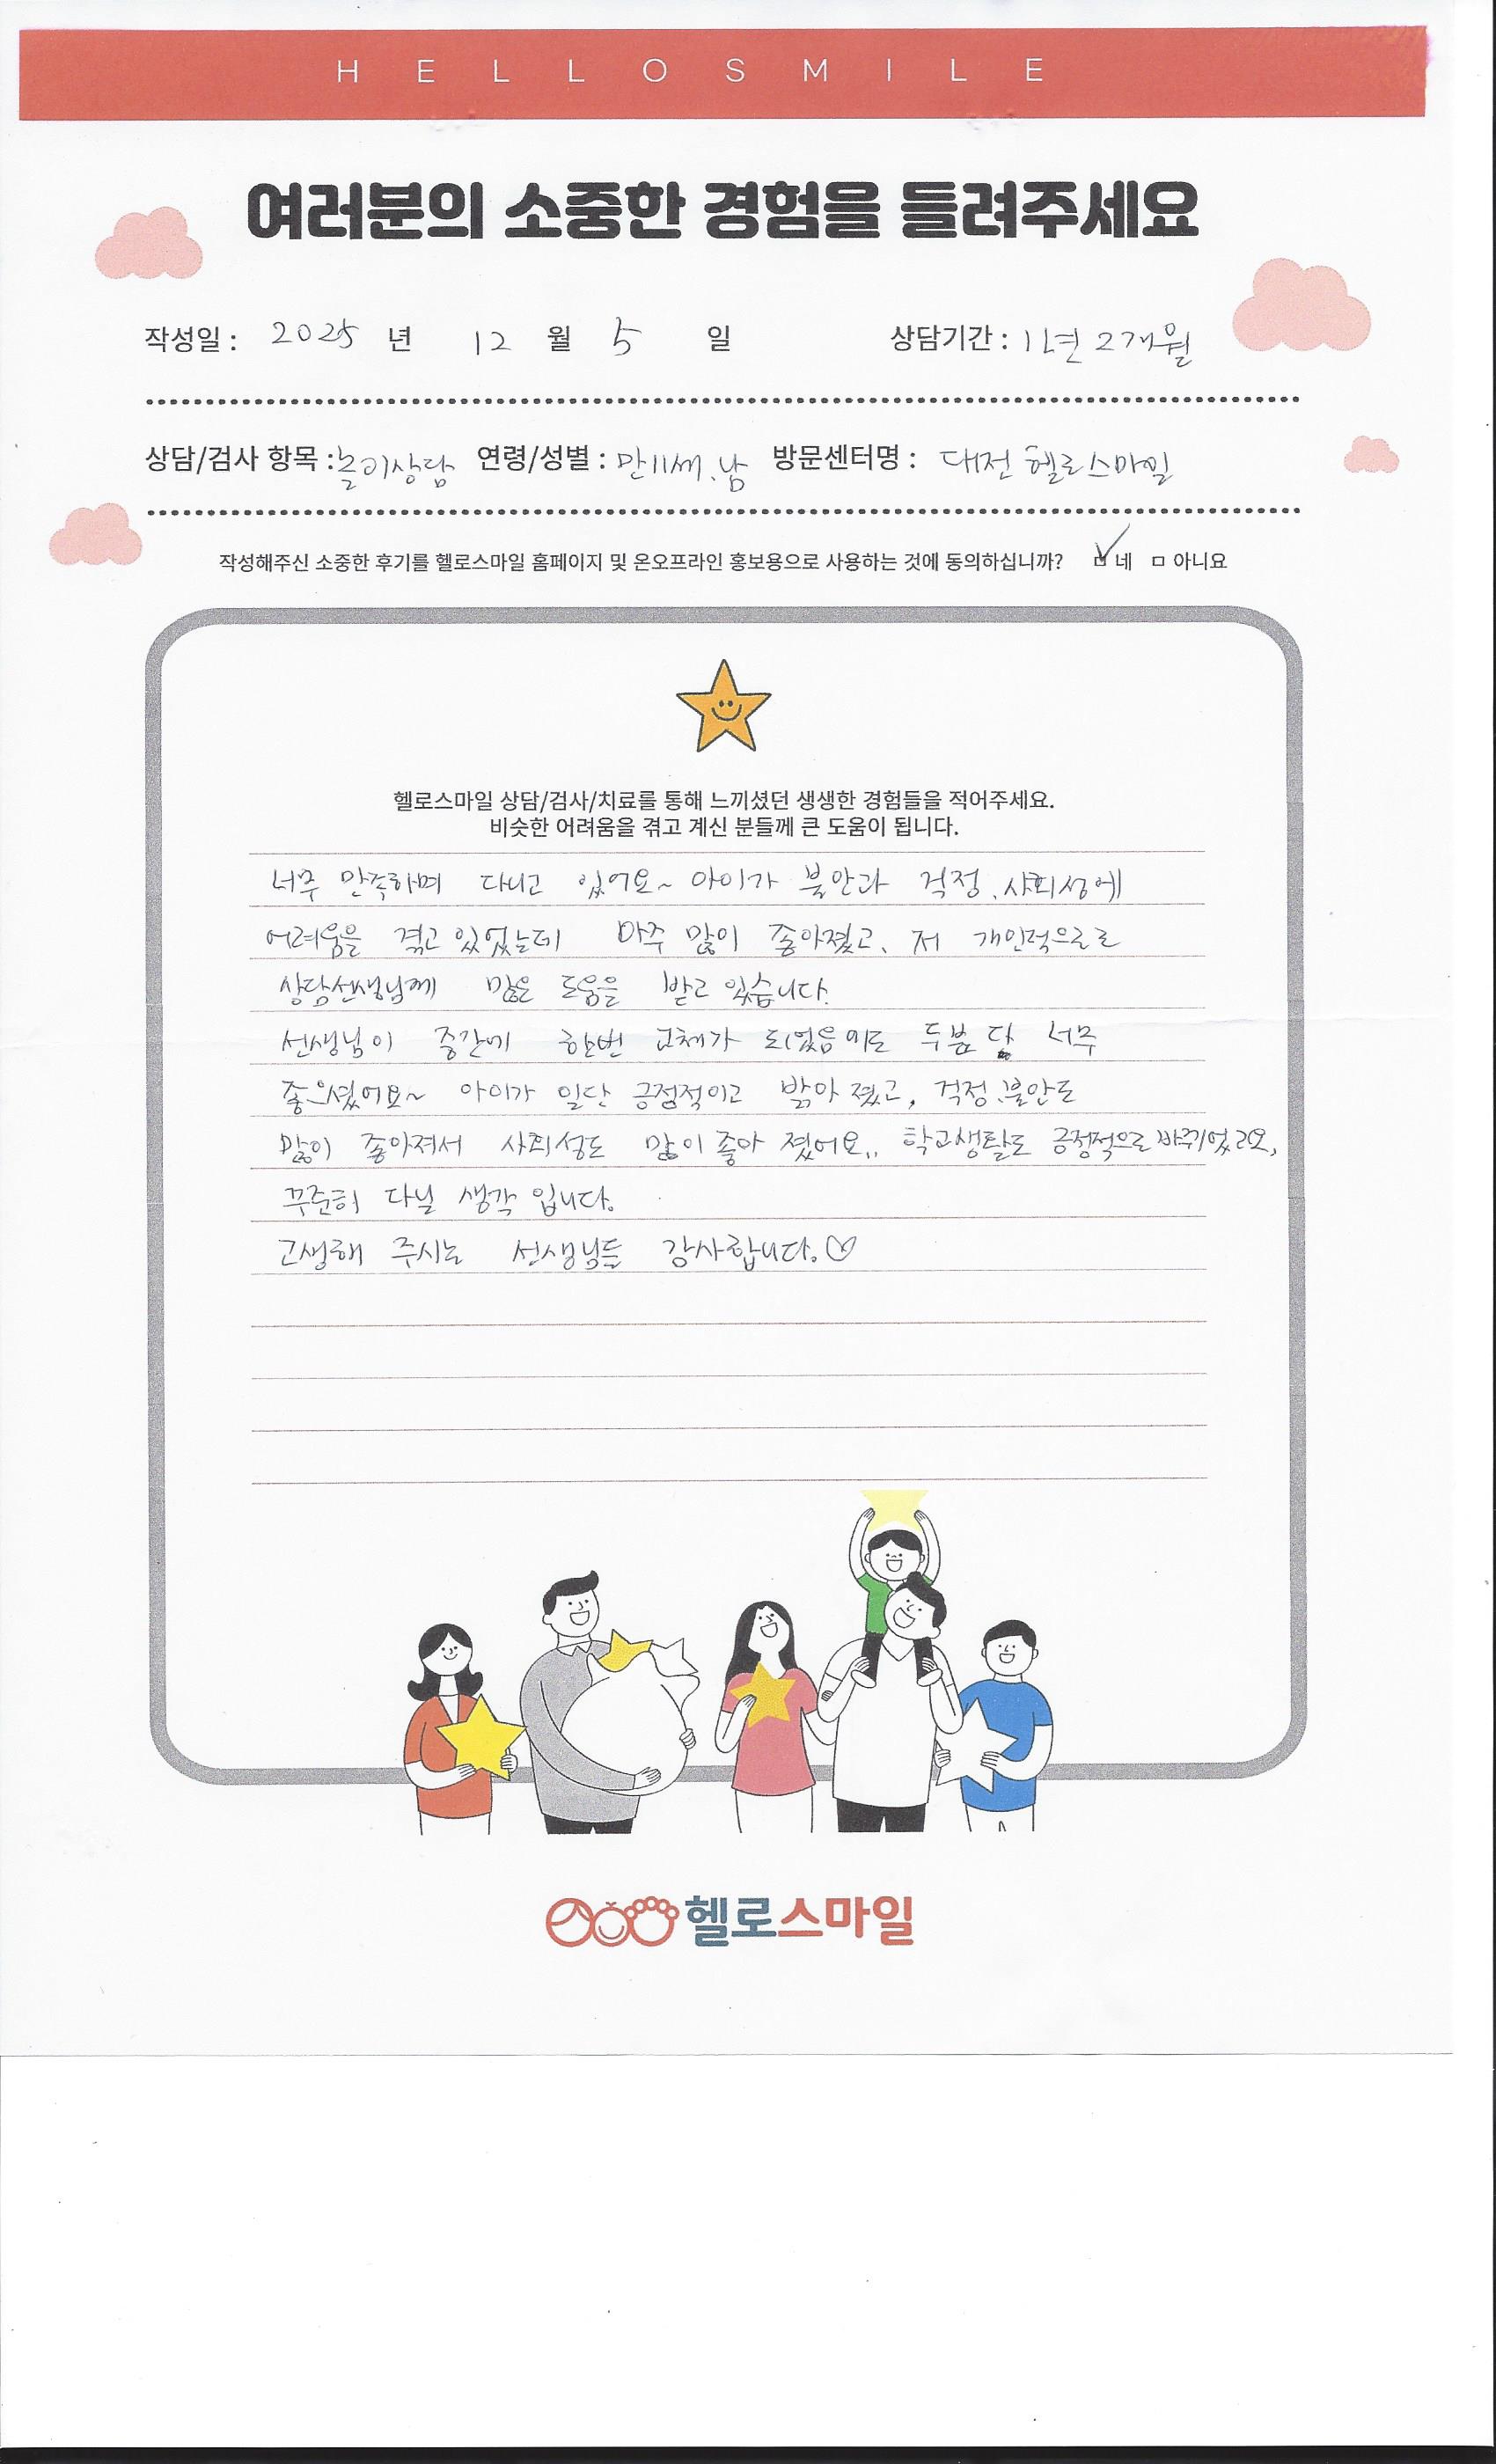 HELLOSMILE
여러분의 소중한 경험을 들려주세요
작성일 : 2025 년 12 월 5 일 상담기간 : 1년 2개월
상담/검사 항목 : 놀이상담 연령/성별 : 만11세.남 방문센터명 : 대전 헬로스마일
작성해주신 소중한 후기를 헬로스마일 홈페이지 및 온오프라인 홍보용으로 사용하는 것에 동의하십니까? 네 아니요
헬로스마일 상담/검사/치료를 통해 느끼셨던 생생한 경험들을 적어주세요.
비슷한 어려움을 겪고 계신 분들께 큰 도움이 됩니다.
너무 만족하며 다니고 있어요~ 아이가 불안과 걱정, 사회성에
어려움을 겪고 있었는데 아주 많이 좋아졌고, 저 개인적으로도
상담선생님께 많은 도움을 받고 있습니다.
선생님이 중간에 한번 교체가 되었음에도 두분 다 너무
좋으셨어요~ 아이가 일단 긍정적이고 밝아 졌고, 걱정.불안도
많이 좋아져서 사회성도 많이 좋아 졌어요.. 학교생활도 긍정적으로 바뀌었고요,
꾸준히 다닐 생각 입니다.
고생해 주시는 선생님들 감사합니다.♡
헬로스마일